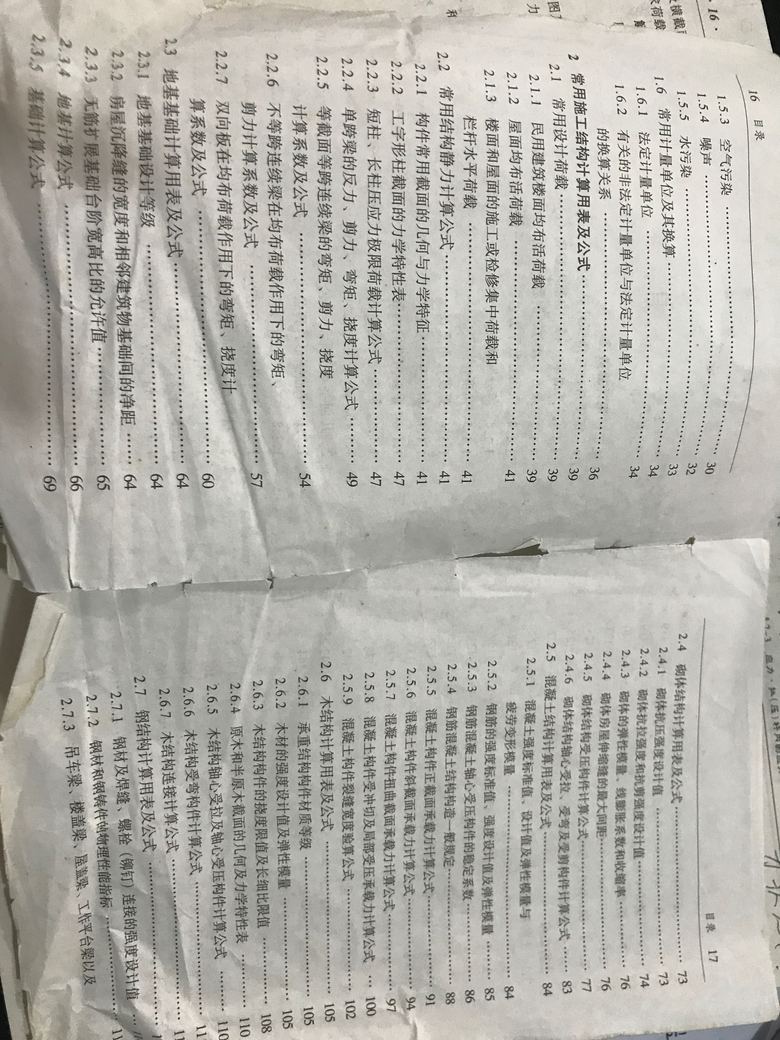 16 目录
1.5.3 空气污染 …… 30
1.5.4 噪声 …… 32
1.5.5 水污染 …… 33
1.6 常用计量单位及其换算 …… 34
1.6.1 法定计量单位 …… 34
1.6.2 有关的非法定计量单位与法定计量单位
的换算关系 …… 36
2 常用施工结构计算用表及公式 …… 39
2.1 常用设计荷载 …… 39
2.1.1 民用建筑楼面均布活荷载 …… 39
2.1.2 屋面均布活荷载 …… 41
2.1.3 楼面和屋面的施工或检修集中荷载和
栏杆水平荷载 …… 41
2.2 常用结构静力计算公式 …… 41
2.2.1 构件常用截面的几何与力学特征 …… 41
2.2.2 工字形柱截面的力学特性表 …… 47
2.2.3 短柱、长柱压应力极限荷载计算公式 …… 47
2.2.4 单跨梁的反力、剪力、弯矩、挠度计算公式 …… 49
2.2.5 等截面等跨连续梁的弯矩、剪力、挠度
计算系数及公式 …… 54
2.2.6 不等跨连续梁在均布荷载作用下的弯矩、
剪力计算系数及公式 …… 57
2.2.7 双向板在均布荷载作用下的弯矩、挠度计
算系数及公式 …… 60
2.3 地基基础计算用表及公式 …… 64
2.3.1 地基基础设计等级 …… 64
2.3.2 房屋沉降缝的宽度和相邻建筑物基础间的净距 …… 64
2.3.3 无筋扩展基础台阶宽高比的允许值 …… 65
2.3.4 地基计算公式 …… 66
2.3.5 基础计算公式 …… 69
目录 17
2.4 砌体结构计算用表及公式 …… 73
2.4.1 砌体抗压强度设计值 …… 73
2.4.2 砌体抗拉强度和抗剪强度设计值 …… 74
2.4.3 砌体的弹性模量、线膨胀系数和收缩率 …… 76
2.4.4 砌体房屋伸缩缝的最大间距 …… 76
2.4.5 砌体结构受压构件计算公式 …… 77
2.4.6 砌体结构轴心受拉、受弯及受剪构件计算公式 …… 83
2.5 混凝土结构计算用表及公式 …… 84
2.5.1 混凝土强度标准值、设计值及弹性模量与
疲劳变形模量 …… 84
2.5.2 钢筋的强度标准值、强度设计值及弹性模量 …… 85
2.5.3 钢筋混凝土轴心受压构件的稳定系数 …… 86
2.5.4 钢筋混凝土结构构造一般规定 …… 88
2.5.5 混凝土构件正截面承载力计算公式 …… 91
2.5.6 混凝土构件斜截面承载力计算公式 …… 94
2.5.7 混凝土构件扭曲截面承载力计算公式 …… 97
2.5.8 混凝土构件受冲切及局部受压承载力计算公式 …… 100
2.5.9 混凝土构件裂缝宽度验算公式 …… 102
2.6 木结构计算用表及公式 …… 105
2.6.1 承重结构构件材质等级 …… 105
2.6.2 木材的强度设计值及弹性模量 …… 105
2.6.3 木结构构件的挠度限值及长细比限值 …… 108
2.6.4 原木和半原木截面的几何及力学特性表 …… 110
2.6.5 木结构轴心受拉及轴心受压构件计算公式 …… 110
2.6.6 木结构受弯构件计算公式 …… 11
2.6.7 木结构连接计算公式 …… 11
2.7 钢结构计算用表及公式 ……
2.7.1 钢材及焊缝、螺栓（铆钉）连接的强度设计值 ……
2.7.2 钢材和钢铸件的物理性能指标 …… 11
2.7.3 吊车梁、楼盖梁、屋盖梁、工作平台梁以及